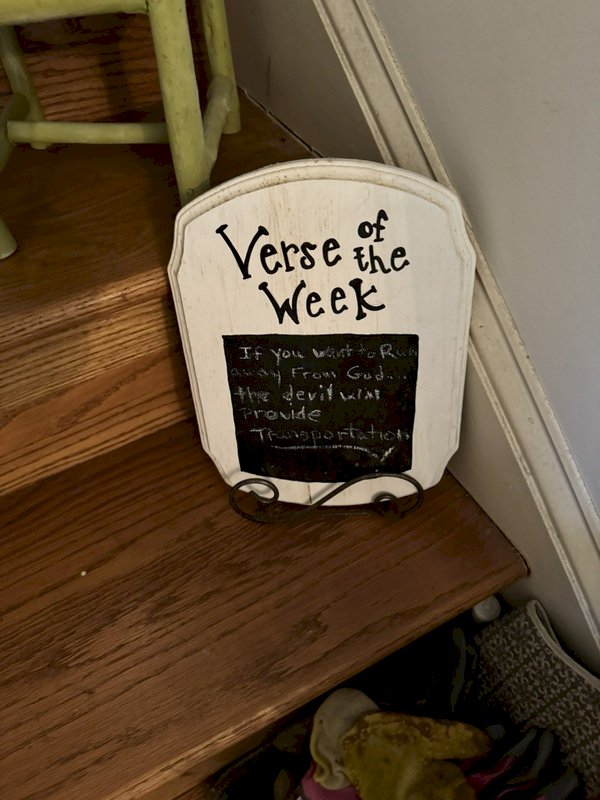 Verse of the
Week
If you want to Run
away From God...
the devil will
Provide
Transportation